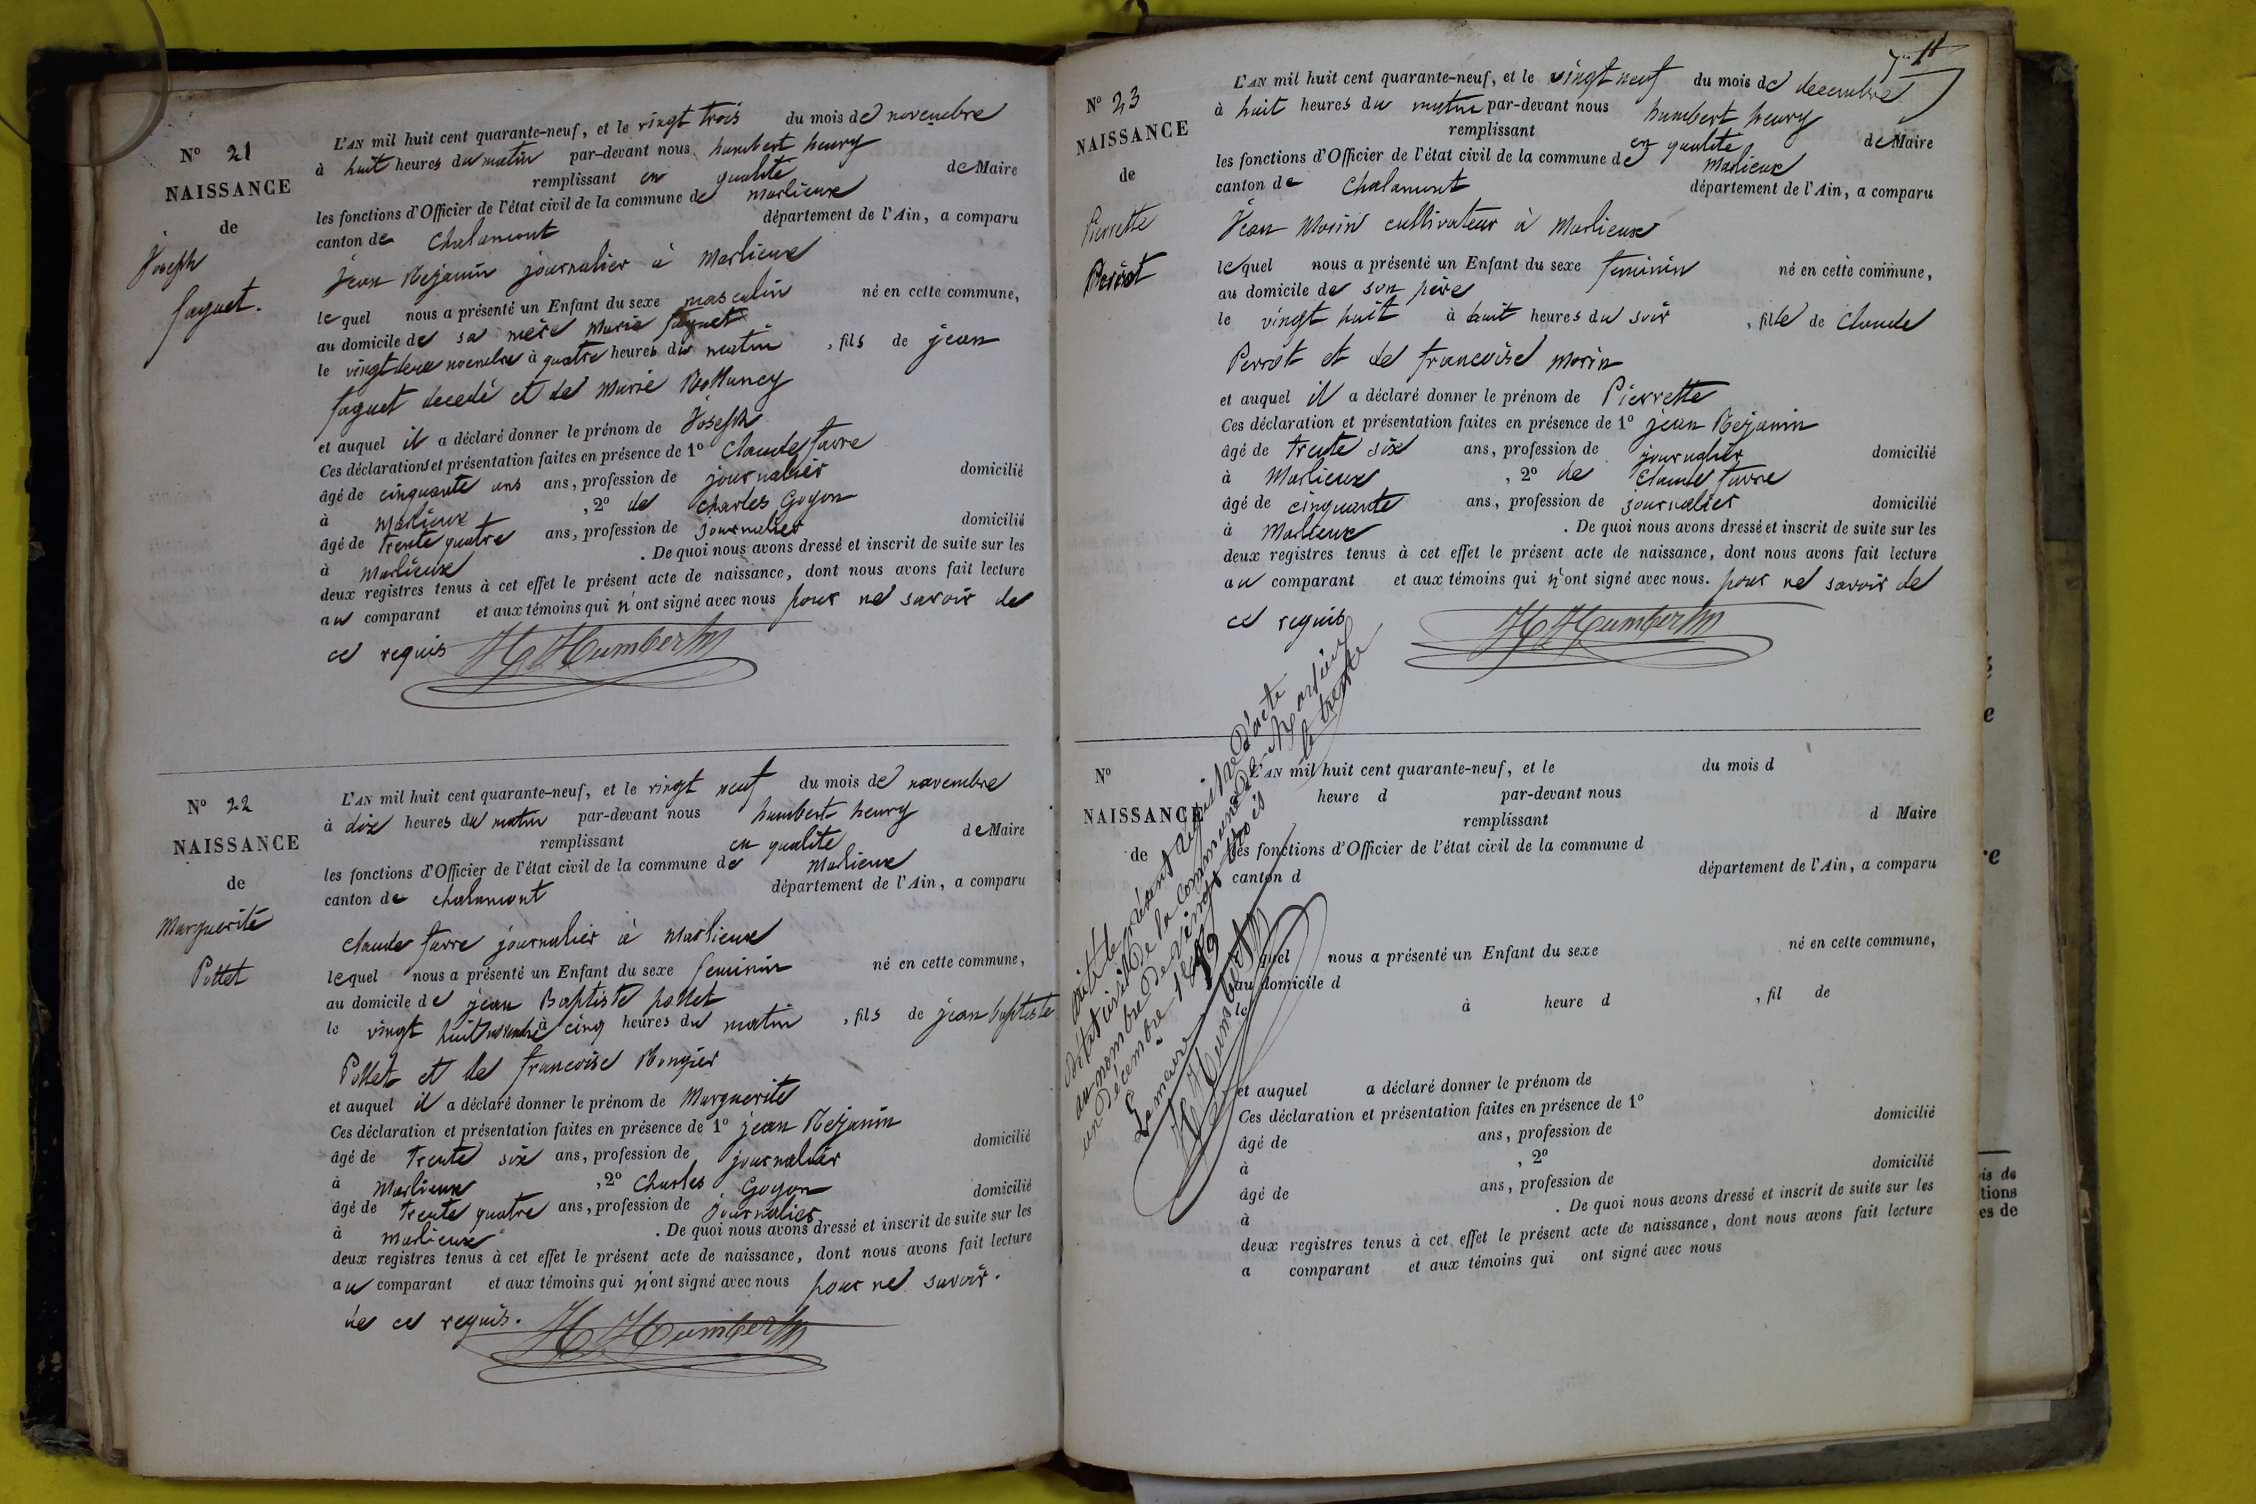 N° 21
NAISSANCE
de
Joseph
faguet.
L'AN mil huit cent quarante-neuf, et le vingt trois du mois de novembre
à huit heures du matin par-devant nous humbert henry
remplissant en qualité de Maire
les fonctions d'Officier de l'état civil de la commune de Marlieux
canton de Chalamont département de l'Ain, a comparu
Jean Rejanin journalier à Marlieux
lequel nous a présenté un Enfant du sexe masculin né en cette commune,
au domicile de sa mère Marie faguet
le vingt deux novembre à quatre heures du matin, fils de jean
faguet decedé et de Marie
et auquel il a déclaré donner le prénom de Joseph
Ces déclarations et présentation faites en présence de 1° Claude favre
âgé de cinquante ans ans, profession de journalier domicilié
à Marlieux, 2° de Charles Goyon
âgé de trente quatre ans, profession de Journalier domicilié
à Marlieux. De quoi nous avons dressé et inscrit de suite sur les
deux registres tenus à cet effet le présent acte de naissance, dont nous avons fait lecture
au comparant et aux témoins qui n'ont signé avec nous pour ne savoir de
ce requis H Humbert
N° 22
NAISSANCE
de
Marguerite
Pollet
L'AN mil huit cent quarante-neuf, et le vingt neuf du mois de novembre
à dix heures du matin par-devant nous humbert henry
remplissant en qualité de Maire
les fonctions d'Officier de l'état civil de la commune de Marlieux
canton de chalamont département de l'Ain, a comparu
Claude favre journalier à Marlieux
lequel nous a présenté un Enfant du sexe feminin né en cette commune,
au domicile de jean Baptiste pollet
le vingt huit novembre à cinq heures du matin, fils de jean baptiste
Pollet et de francoise Mongier
et auquel il a déclaré donner le prénom de Marguerite
Ces déclaration et présentation faites en présence de 1° jean Rejanin
âgé de trente six ans, profession de journalier domicilié
à Marlieux, 2° Charles Goyon
âgé de trente quatre ans, profession de Journalier domicilié
à Marlieux. De quoi nous avons dressé et inscrit de suite sur les
deux registres tenus à cet effet le présent acte de naissance, dont nous avons fait lecture
au comparant et aux témoins qui n'ont signé avec nous pour ne savoir.
de ce requis. H Humbert
N° 23
NAISSANCE
de
Pierrette
Perrot
L'AN mil huit cent quarante-neuf, et le vingt neuf du mois de decembre
à huit heures du matin par-devant nous humbert henry
remplissant en qualité de Maire
les fonctions d'Officier de l'état civil de la commune de Marlieux
canton de Chalamont département de l'Ain, a comparu
Jean Morin cultivateur à Marlieux
lequel nous a présenté un Enfant du sexe feminin né en cette commune,
au domicile de son père
le vingt huit à huit heures du soir, fille de Claude
Perrot et de francoise morin
et auquel il a déclaré donner le prénom de Pierrette
Ces déclaration et présentation faites en présence de 1° jean Rejanin
âgé de trente six ans, profession de journalier domicilié
à Marlieux, 2° de Claude favre
âgé de cinquante ans, profession de journalier domicilié
à Marlieux. De quoi nous avons dressé et inscrit de suite sur les
deux registres tenus à cet effet le présent acte de naissance, dont nous avons fait lecture
au comparant et aux témoins qui n'ont signé avec nous. pour ne savoir de
ce requis H Humbert
le présent registre d'acte
d'état civil de la commune de Marlieux
au nombre de vingt trois le trente
un Décembre 1849
Le maire
H Humbert
N°
NAISSANCE
de
L'AN mil huit cent quarante-neuf, et le du mois d
heure d par-devant nous
remplissant d Maire
les fonctions d'Officier de l'état civil de la commune d
canton d département de l'Ain, a comparu
quel nous a présenté un Enfant du sexe né en cette commune,
au domicile d
le à heure d, fil de
et auquel a déclaré donner le prénom de
Ces déclaration et présentation faites en présence de 1°
âgé de ans, profession de domicilié
à, 2°
âgé de ans, profession de domicilié
à. De quoi nous avons dressé et inscrit de suite sur les
deux registres tenus à cet effet le présent acte de naissance, dont nous avons fait lecture
a comparant et aux témoins qui ont signé avec nous